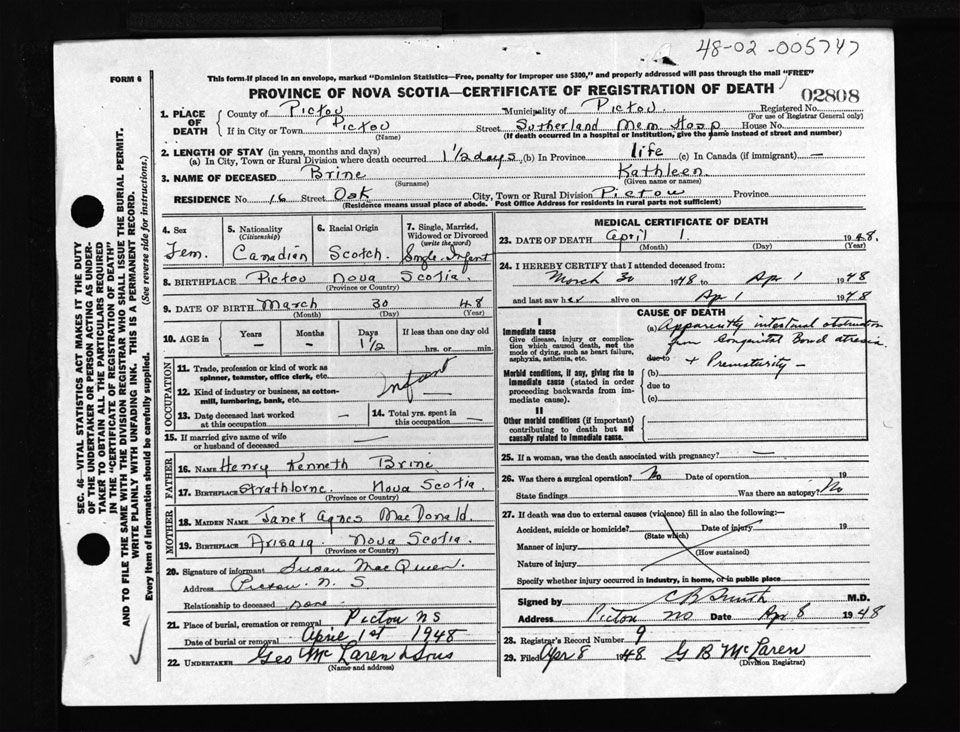 48-02-005747
FORM 6
This form if placed in an envelope, marked "Dominion Statistics—Free, penalty for improper use $300," and properly addressed will pass through the mail "FREE"
PROVINCE OF NOVA SCOTIA—CERTIFICATE OF REGISTRATION OF DEATH
02808
SEC. 46—VITAL STATISTICS ACT MAKES IT THE DUTY
OF THE UNDERTAKER OR PERSON ACTING AS UNDER-
TAKER TO OBTAIN ALL THE PARTICULARS REQUIRED
IN THE "CERTIFICATE OF REGISTRATION OF DEATH"
AND TO FILE THE SAME WITH THE DIVISION REGISTRAR WHO SHALL ISSUE THE BURIAL PERMIT.
WRITE PLAINLY WITH UNFADING INK. THIS IS A PERMANENT RECORD.
Every item of information should be carefully supplied. (See reverse side for instructions.)
1. PLACE OF DEATH
County of Pictou Municipality of Pictou Registered No.
(For use of Registrar General only)
If in City or Town Pictou Street Sutherland Mem Hosp House No.
(Name) (If death occurred in a hospital or institution, give the name instead of street and number)
2. LENGTH OF STAY (in years, months and days)
(a) In City, Town or Rural Division where death occurred 1 1/2 days (b) In Province life (c) In Canada (if immigrant) —
3. NAME OF DECEASED Brine Kathleen
(Surname) (Given name or names)
RESIDENCE No. 16 Street Oak City, Town or Rural Division Pictou Province
(Residence means usual place of abode. Post Office Address for residents in rural parts not sufficient)
4. Sex
Fem.
5. Nationality
(Citizenship)
Canadian
6. Racial Origin
Scotch
7. Single, Married,
Widowed or Divorced
(write the word)
Single Infant
8. BIRTHPLACE Pictou Nova Scotia
(Province or Country)
9. DATE OF BIRTH March 30 48
(Month) (Day) (Year)
10. AGE in Years Months Days If less than one day old
— — 1 1/2 hrs. or min.
OCCUPATION
11. Trade, profession or kind of work as
spinner, teamster, office clerk, etc.
Infant
12. Kind of industry or business, as cotton-
mill, lumbering, bank, etc.
13. Date deceased last worked
at this occupation —
14. Total yrs. spent in
this occupation —
15. If married give name of wife
or husband of deceased —
FATHER
16. NAME Henry Kenneth Brine
17. BIRTHPLACE Strathlorne Nova Scotia
(Province or Country)
MOTHER
18. MAIDEN NAME Janet Agnes MacDonald
19. BIRTHPLACE Arisaig Nova Scotia
(Province or Country)
20. Signature of informant Susan MacQueen
Address Pictou N. S
Relationship to deceased none
21. Place of burial, cremation or removal Pictou NS
Date of burial or removal April 1st 1948
22. UNDERTAKER Geo McLaren & Sons
(Name and address)
MEDICAL CERTIFICATE OF DEATH
23. DATE OF DEATH April 1 1948.
(Month) (Day) (Year)
24. I HEREBY CERTIFY that I attended deceased from:
March 30 1948 to Apr 1 1948
and last saw her alive on Apr 1 1948
CAUSE OF DEATH
I
Immediate cause
Give disease, injury or complica-
tion which caused death, not the
mode of dying, such as heart failure,
asphyxia, asthenia, etc.
(a) Apparently intestinal obstruction
from Congenital Bowel atresia
due to + Prematurity —
Morbid conditions, if any, giving rise to
immediate cause (stated in order
proceeding backwards from im-
mediate cause).
(b)
due to
(c)
II
Other morbid conditions (if important)
contributing to death but not
causally related to immediate cause.
25. If a woman, was the death associated with pregnancy? —
26. Was there a surgical operation? No Date of operation 19
State findings Was there an autopsy? No
27. If death was due to external causes (violence) fill in also the following:—
Accident, suicide or homicide? Date of injury 19
(State which)
Manner of injury
(How sustained)
Nature of injury
Specify whether injury occurred in industry, in home, or in public place
Signed by C B Smith M.D.
Address Pictou NS Date Apr 8 1948
28. Registrar's Record Number 9
29. Filed Apr 8 1948 G B McLaren
(Division Registrar)